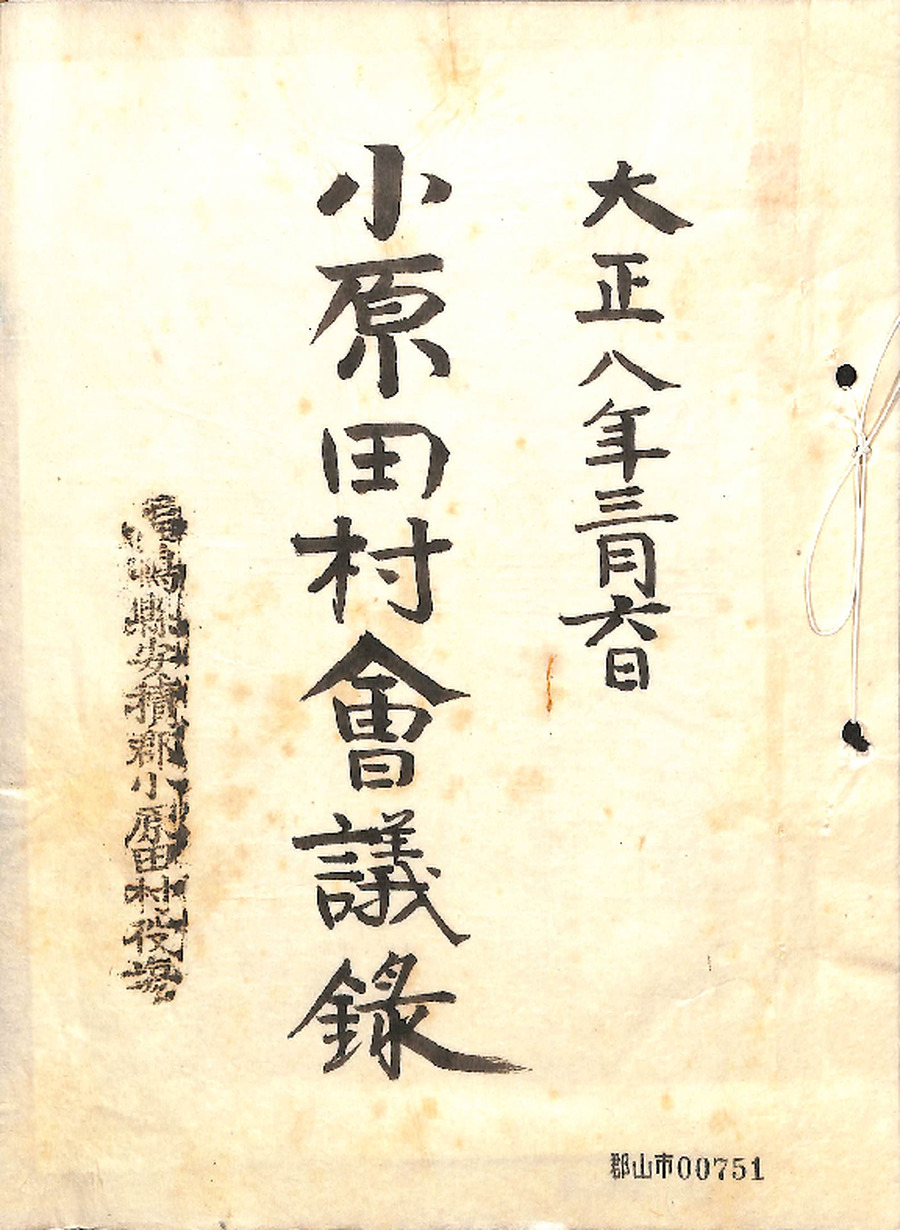 大正八年三月六日
小原田村會議錄
福島縣安積郡小原田村役場
郡山市00751